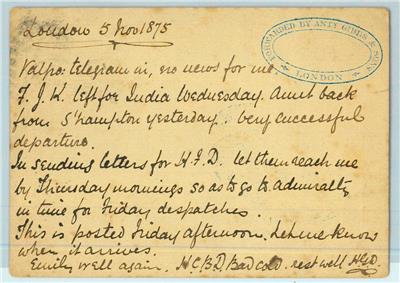 London 5 Nov 1875
FORWARDED BY ANTY. GIBBS & SONS
LONDON
Valpo: telegram in, no news for me.
F. J. K. left for India Wednesday. Aunt back
from S'hampton yesterday. Very successful
departure.
In sending letters for H.F.D. let them reach me
by Thursday mornings so as to go to Admiralty
in time for Friday despatches.
This is posted Friday afternoon. Let me know
when it arrives.
Emily well again. H.C.B.D. Bad cold. rest well HGD